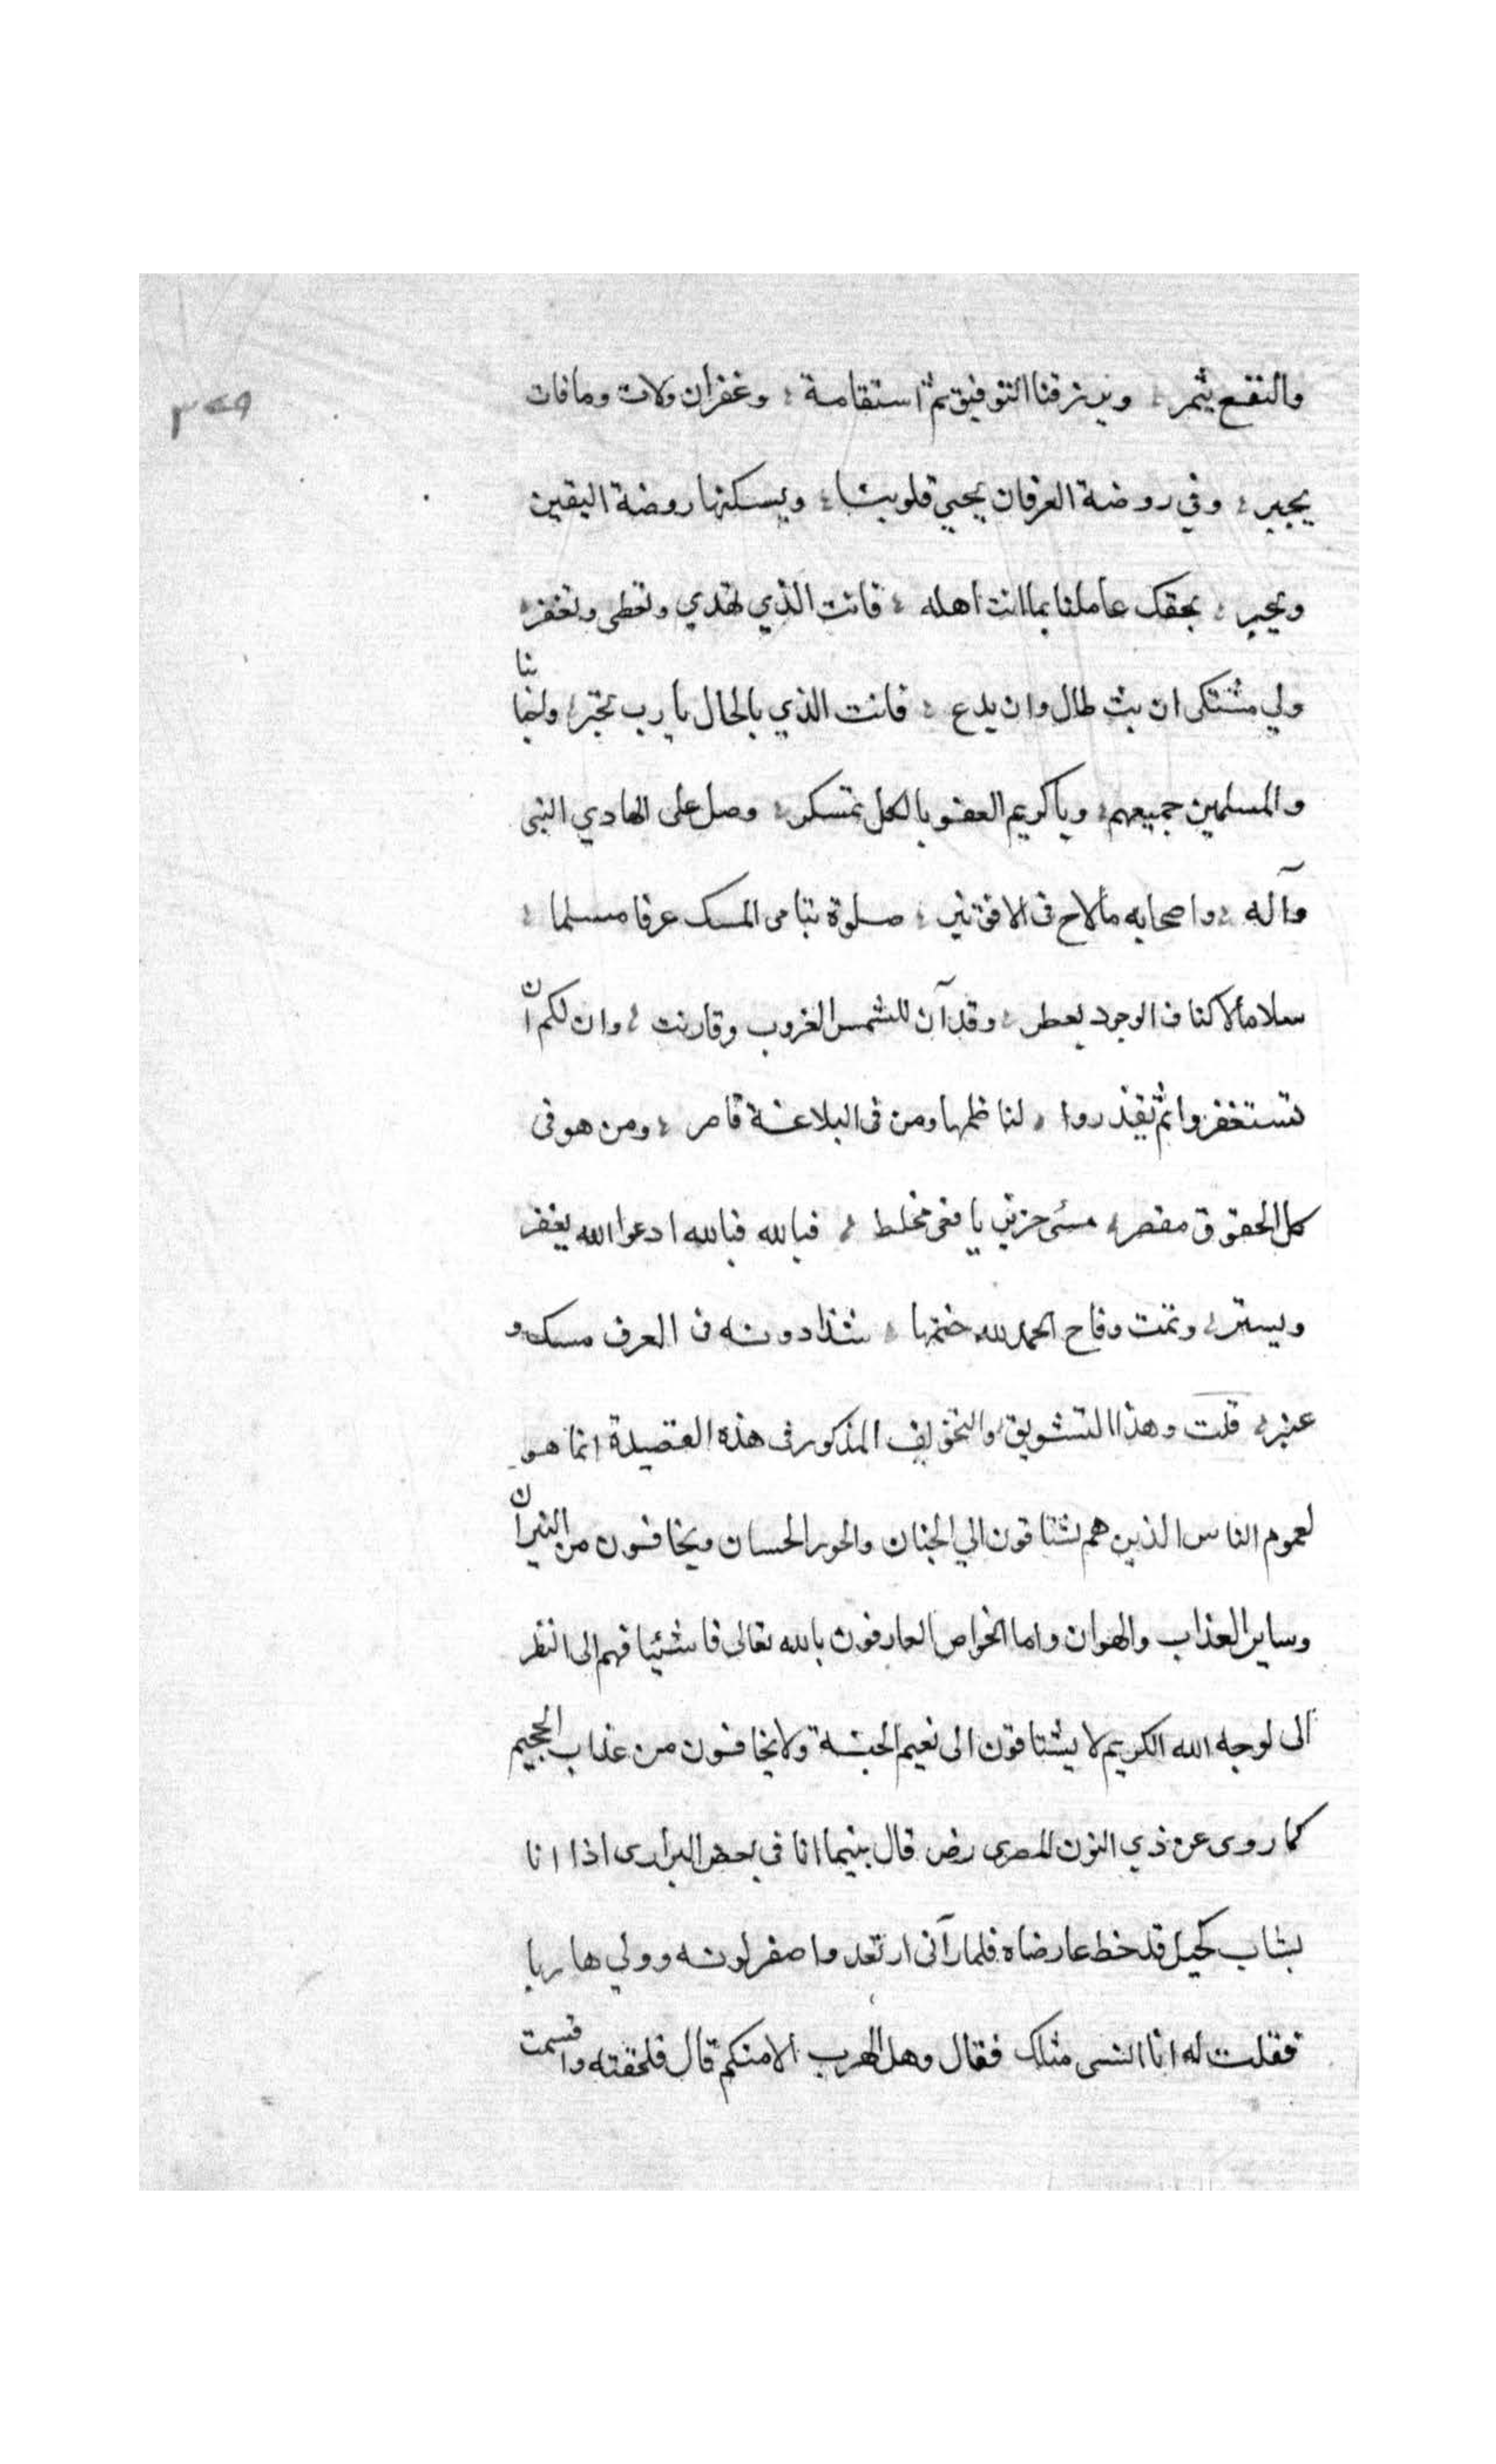 ٣٤٩
والنفع يثمر ؛ ويرزقنا التوفيق ثم استقامة ؛ وغفران ولات ومافات
يجبر ؛ وفي روضة العرفان يحيي قلوبنا ؛ ويسكنها روضة اليقين
ويحبر ؛ بحقك عاملنا بما انت اهله ؛ فانت الذي تهدي وتعطى وتغفر ؛
ولي مشتكى ان بث طال وان يدع ؛ فانت الذي بالحال يا رب تخبر ؛
والمسلمين جميعهم ؛ ويا كريم العفو بالكل تمسكر ؛ وصل على الهادي النبى
وآله ؛ واصحابه مالاح فى الافق نير ؛ صلوة تباهى المسك عرفا مسلما ؛
سلاما لاكناف الوجود يعطر ؛ وقد آن للشمس الغروب وقارنت ؛ وان لكم ان
تستغفروا ثم تعذروا ؛ لناظمها ومن فى البلاغة قاصر ؛ ومن هو فى
كل الحقوق مقصر ؛ مسئ حزين يافعى مخلط ؛ فبالله فبالله ادعوا الله يغفر
ويستر ؛ وتمت وفاح الحمد لله ختمها ؛ شذا دونه فى العرف مسك و
عنبر ؛ قلت وهذا التشويق والتخويف المذكور فى هذه القصيدة انما هو
لعموم الناس الذين هم يشتاقون الي الجنان والحور الحسان ويخافون من النيران
وساير العذاب والهوان واما الخواص العارفون بالله تعالى فاشئيا فهم الى النظر
الى لوجه الله الكريم لا يشتاقون الى نعيم الجنة ولا يخافون من عذاب الجحيم
كما روى عن ذي النون المصرى رض قال بينما انا فى بعض البرارى اذا انا
بشاب كحيل قد خط عارضاه فلما رآنى ارتعد واصفر لونه وولي هاربا
فقلت له انا انسى مثلك فقال وهل الهرب الا منكم قال فلحقته واقسمت